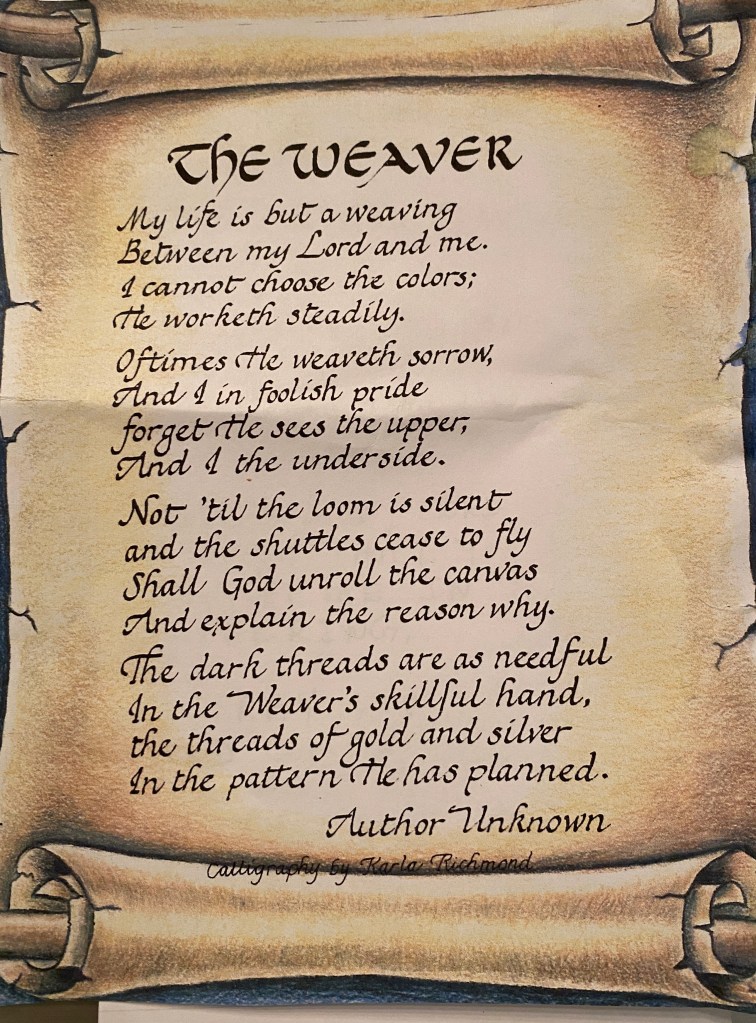 THE WEAVER
My life is but a weaving
Between my Lord and me.
I cannot choose the colors;
He worketh steadily.
Oftimes He weaveth sorrow,
And I in foolish pride
forget He sees the upper,
And I the underside.
Not 'til the loom is silent
and the shuttles cease to fly
Shall God unroll the canvas
And explain the reason why.
The dark threads are as needful
In the Weaver's skillful hand,
the threads of gold and silver
In the pattern He has planned.
Author Unknown
Calligraphy by Karla Richmond